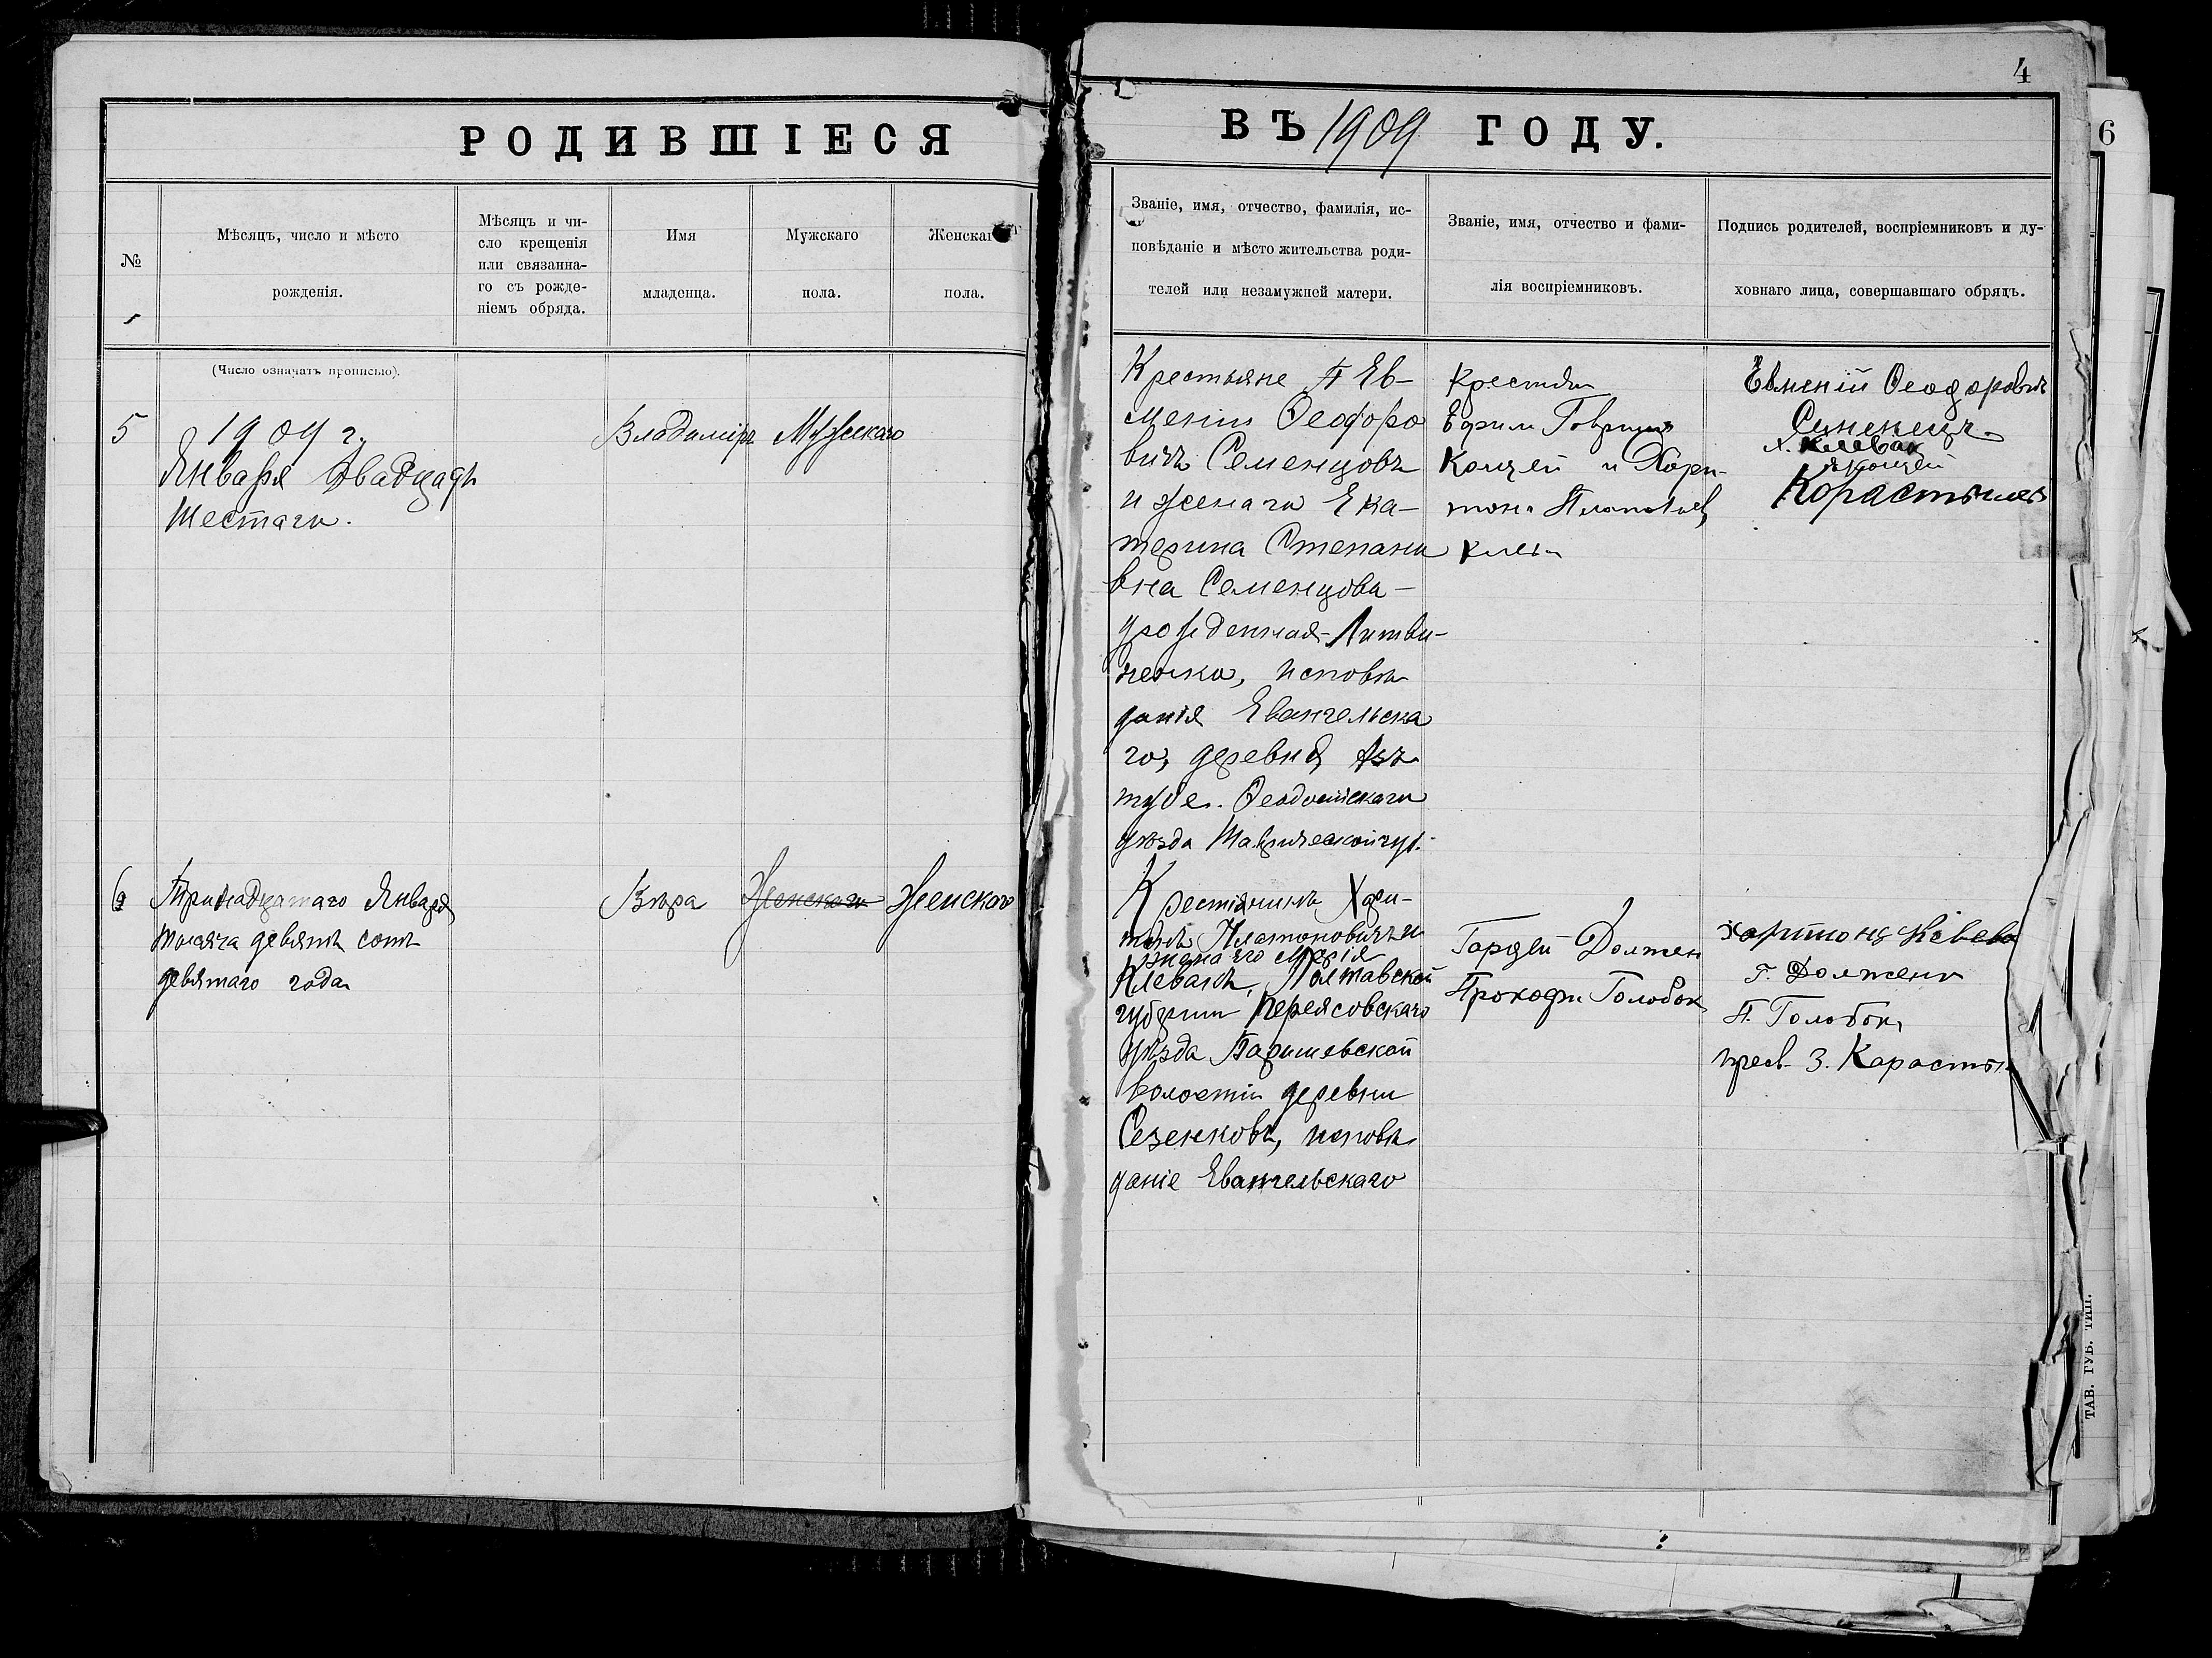 4
РОДИВШІЕСЯ
ВЪ 1909 ГОДУ.
6
№
Мѣсяцъ, число и мѣсто
рожденія.
Мѣсяцъ и чи-
сло крещенія
или связанна-
го съ рожде-
ніемъ обряда.
Имя
младенца.
Мужскаго
пола.
Женскаг
пола.
Званіе, имя, отчество, фамилія, ис-
повѣданіе и мѣсто жительства роди-
телей или незамужней матери.
Званіе, имя, отчество и фами-
лія воспріемниковъ.
Подпись родителей, воспріемниковъ и ду-
ховнаго лица, совершавшаго обрядъ.
(Число означать прописью).
5
1909 г.
Января двадцать
шестаго.
Владиміръ
Мужскаго
Крестьяне Ев-
мении Феодоро
вичъ Семенцовъ
и женаго Ека-
терина Степано
вна Семенцова-
урожденная-Литви-
ненко, исповѣ
данія Евангельска
го, деревня
Феодосійскаго
уѣзда Таврической губ.
Крестьян
Ефрим Гаврил
Кощей и Хари-
тонъ
Евменій Феодоровичъ
Клевак
Кощей
6
Тринадцатаго Января
тысяча девять сотъ
девятаго года
Вѣра
Женскаго
Женскаго
Крестіянинъ Хари-
тонъ Платоновичъ и
жена его Марія
Клевакъ, Полтавской
губерніи Переясовскаго
уѣзда Баришевской
волости деревни
Сезенковъ, исповѣ
даніе Евангельскаго
Гордей Должен
Прокофи Голобок
Харитонъ
Г. Должено
П. Голобок
пресв. З. Карасты
ТАВ. ГУБ. ТИП.